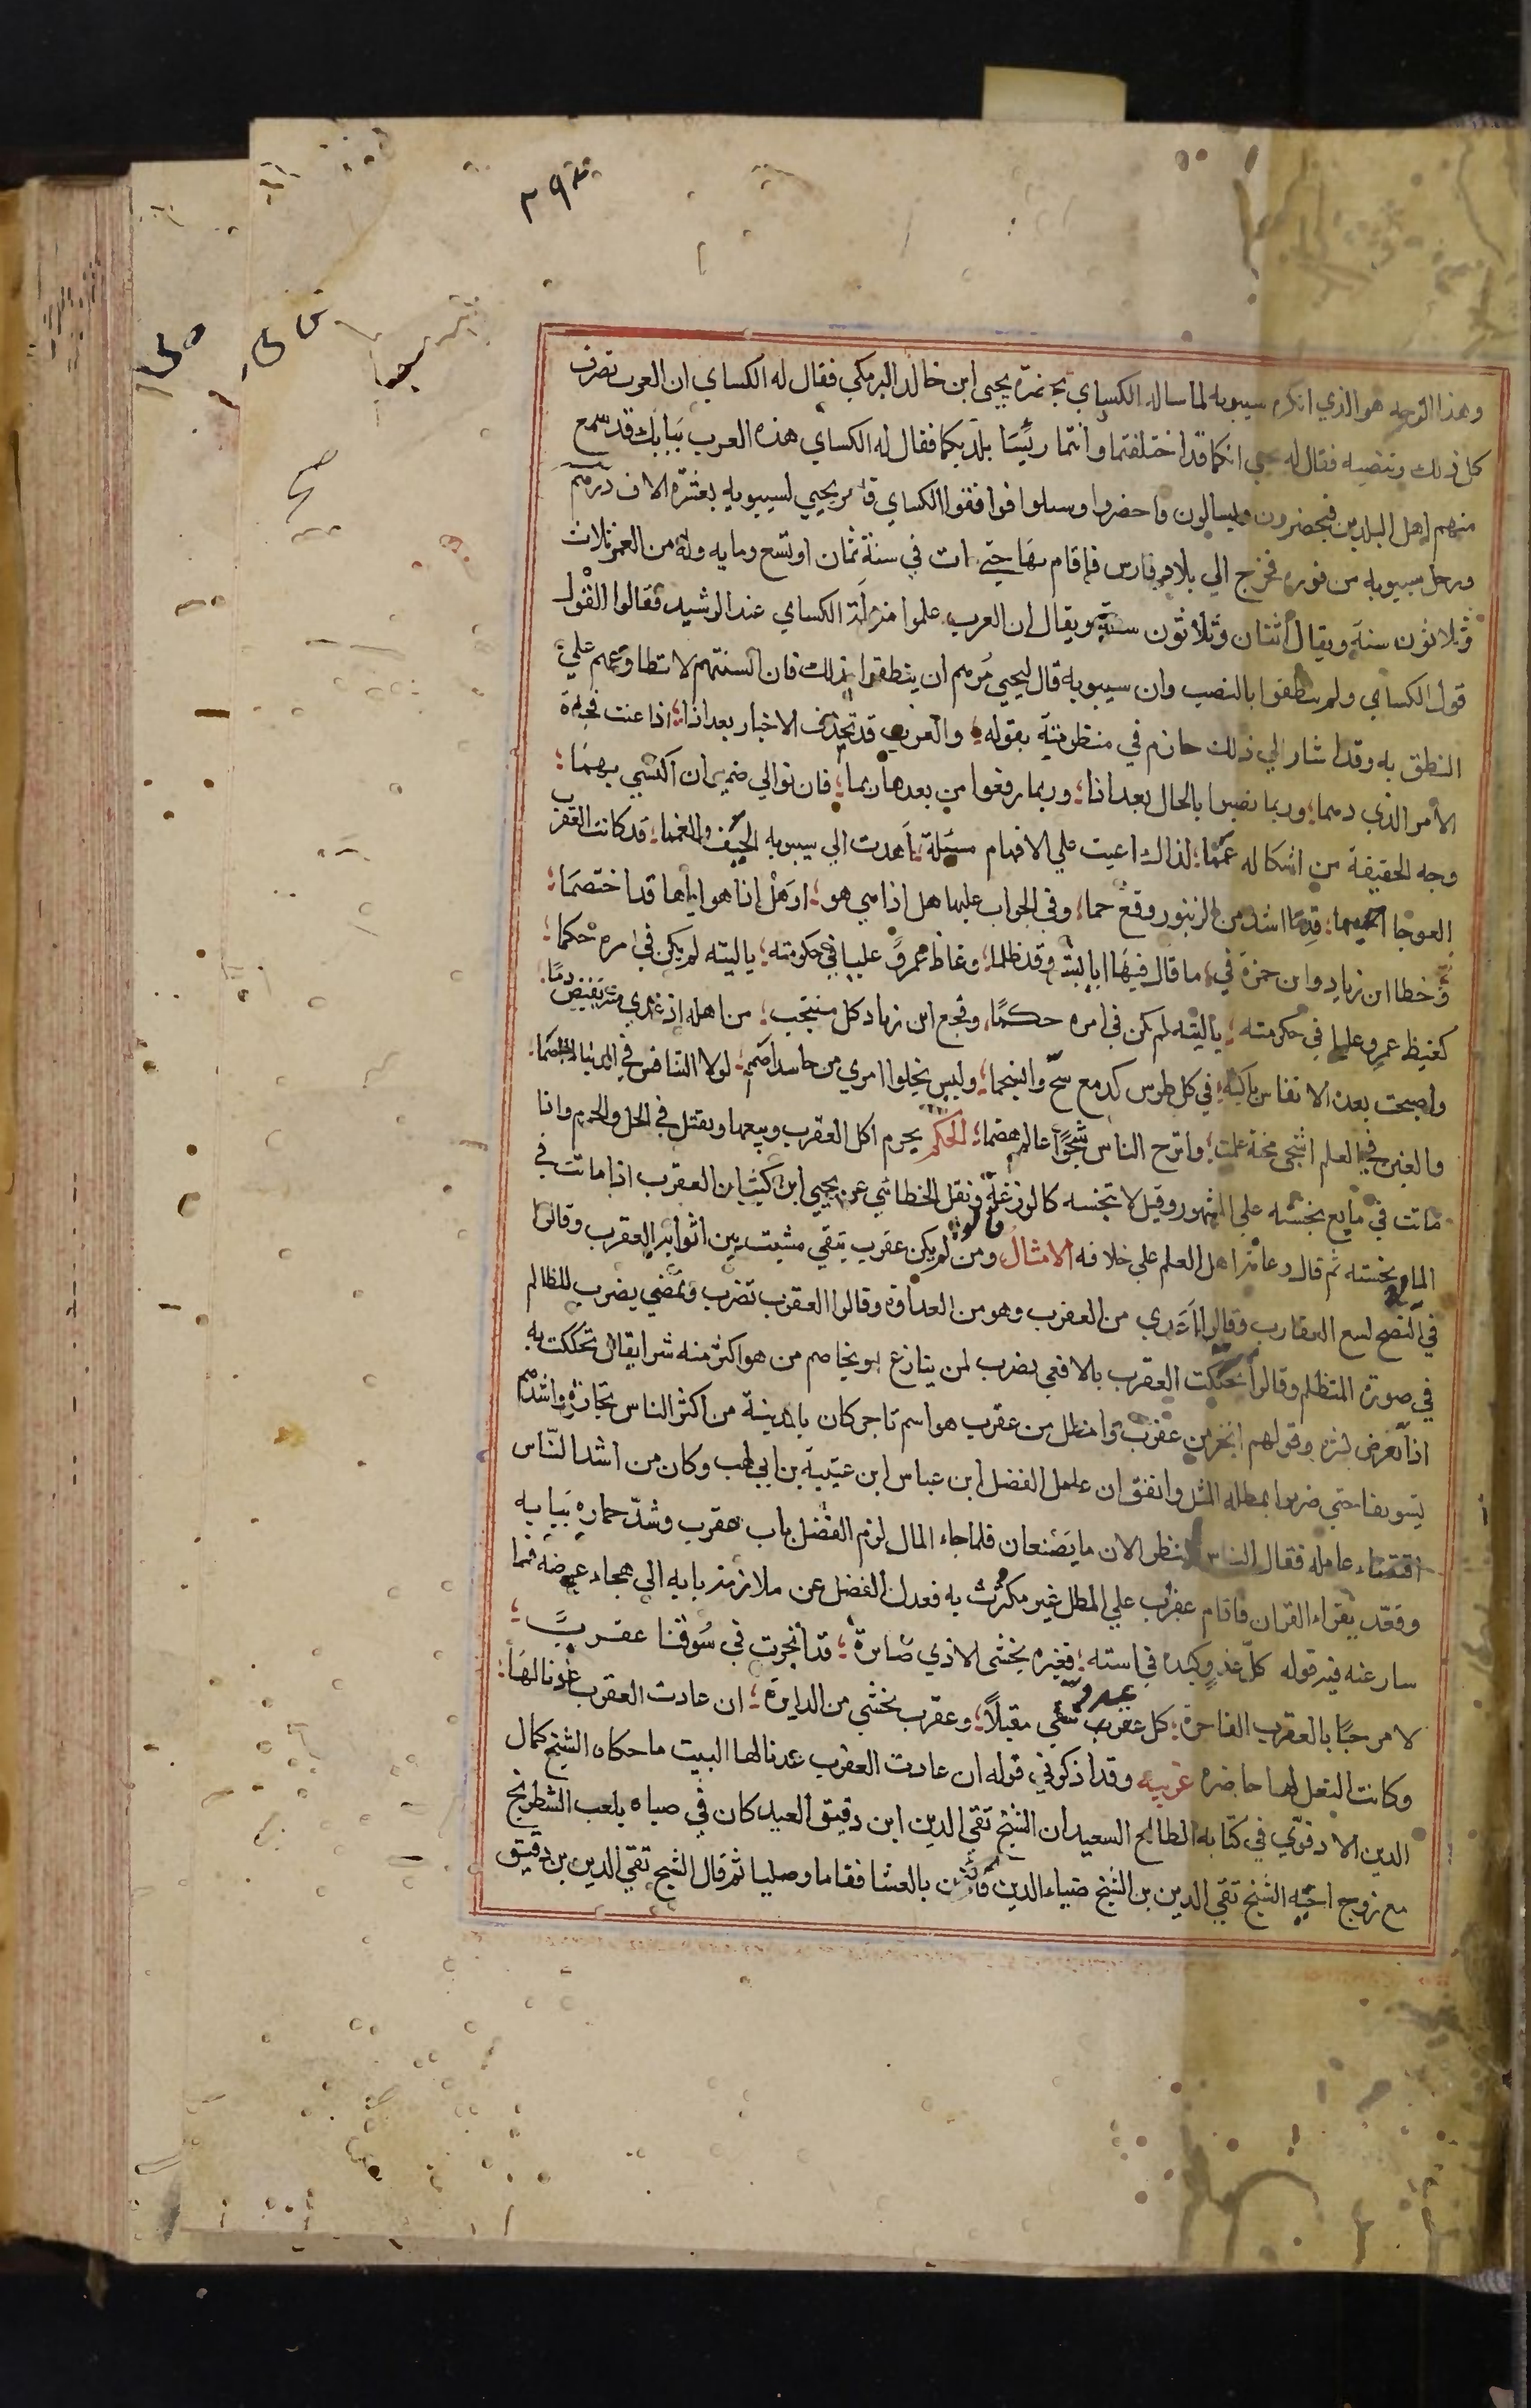 ٣٩٣
وهذا الوجه هو الذي انكره سيبويه لما ساله الكساي بحضرة يحيى ابن خالد البرمكي فقال له الكساي ان العرب ترفع
كل ذلك وتنصبه فقال له يحيى انكما قد اختلفتما وانتما رئيسا بلديكما فقال له الكساي هذه العرب ببابك قد سمع
منهم اهل البلدين فيحضرون ويسالون فاحضروا وسلوا فوافقوا الكساي فامر يحيي لسيبويه بعشرة الاف درهم
ورحل سيبويه من فوره فخرج الي بلاد فارس فاقام بها حتي مات في سنة ثمان او تسع ومايه وله من العمر ثلاث
وثلاثون سنة ويقال اثنان وثلاثون سنة ويقال ان العرب علموا منزلة الكساي عند الرشيد فقالوا القول
قول الكساي ولم ينطقوا بالنصب وان سيبويه قال ليحيي مُرهم ان ينطقوا بذلك فان السنتهم لا تطاوعهم علي
النطق به وقد اشار الي ذلك حازم في منظومته بقوله والعرب قد تحذف الاخبار بعد اذا اذا عنت فجاة
الامر الذي دهما وربما نصبوا بالحال بعد اذا وربما رفعوا من بعدها ربما فان توالي ضميران اكتسي بهما
وجه الحقيقة من اشكاله غمما لذاك اعيت علي الافهام مسئلة اهدت الي سيبويه الحتف والغمما قد كانت العقرب
العوجا قدما اشد من الزنبور وقع حما وفي الجواب عليها هل اذا هي هو او هل اذا هو اياها قد اختصما
وخطا ابن زياد وابن حمزة في ما قال فيها ابا بشر وقد ظلما وغاظ عمروً عليا في حكومته ياليته لم يكن في امره حكما
كغيظ عمرو عليا في حكومته ياليته لم يكن في امره حكمًا وفجع ابن زياد كل منتحب من اهله اذ غدي منه يفيض دمًا
واصبحت بعده الانفاس باكية في كل طرس كدمع سح وانسجما وليس يخلوا امري من حاسد اضم لولا التنافس في الدنيا لما اضما
والغبن في العلم اشجى محنة علمت وابرح الناس شجوًا عالم هضما الحكم يحرم اكل العقرب وبيعها ويقتل في الحل والحرم واذا
ماتت في مايع نجسته علي المشهور وقيل لا تنجسه كالوزغة ونقل الخطابي عن يحيي ابن كثير ان العقرب اذا ماتت في
الماء نجسته ثم قال وعامة اهل العلم علي خلافه الامثال قالوا ومن لم يكن عقرب يتقي مشيت بين اثوابه العقرب وقالوا
في النصح لسع العقارب وقالوا اعدي من العقرب وهو من العداوة وقالوا العقرب تضرب وتمضي يضرب للظالم
في صورة المتظلم وقالوا تحككت العقرب بالافعى يضرب لمن ينازع او يخاصم من هو اكثر منه شرا يقال تحككت به
اذا تعرض لشره وقولهم اتجر من عقرب وامطل من عقرب هو اسم تاجر كان بالمدينة من اكثر الناس تجارة واشدهم
تسويفا حتى ضربوا بمطله المثل واتفق ان عامل الفضل ابن عباس ابن عتيبة بن ابي لهب وكان من اشد النّاس
اقتضاء عامله فقال الناس ننظر الان ما يصنعان فلما جاء المال لزم الفضل باب عقرب وشدّ حماره ببابه
وقعّد يقراء القران فاقام عقرب علي المطل غير مكترث به فعدل الفضل عن ملازمة بابه الي هجاء عرضه فما
سار عنه فيه قوله كل عدو كيده في استه فغيره يخشى الاذي ضايرة قد اتجرت في سُوقنا عقربً
لا مرحبًا بالعقرب التاجرة كل عدو يتقي مقبلًا وعقرب تخشي من الدابرة ان عادت العقرب عدنا لهَا
وكانت النعل لها حاضره غريبه وقد اذكرني قوله ان عادت العقرب عدنا لها البيت ما حكاه الشيخ كمال
الدين الادفوي في كتابه الطالع السعيد ان الشيخ تقي الدين ابن دقيق العيد كان في صباه يلعب الشطرنج
مع زوج اخته الشيخ تقي الدين بن الشيخ ضياء الدين فاذن بالعشا فقاما وصليا ثم قال الشيخ تقي الدين بن دقيق